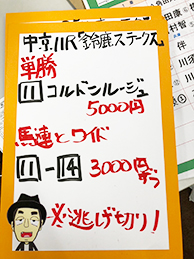 中京11R 鈴鹿ステークス
単勝
11 コルドンルージュ
5000円
馬連とワイド
11-14 3000円ずつ
※逃げ切り!
田康
村智
伴
川須